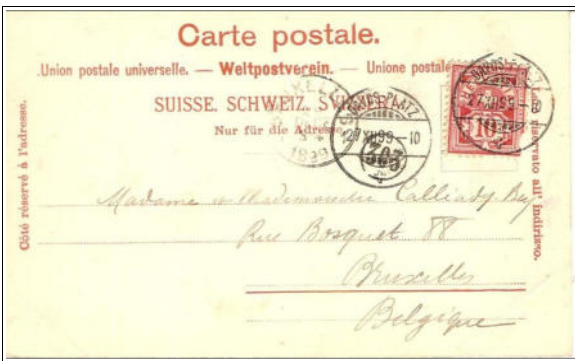 Carte postale.
Union postale universelle. — Weltpostverein. — Unione postale
SUISSE. SCHWEIZ. SVIZZERA.
Nur für die Adresse.
Côté réservé à l'adresse.
Lato riservato all' indirizzo.
DAVOS-PLATZ
27 XII 99–10
DAVOS-PLATZ
27 XII 99
10
1899
Madame Mademoiselle
Rue Bosquet 88
Bruxelles
Belgique